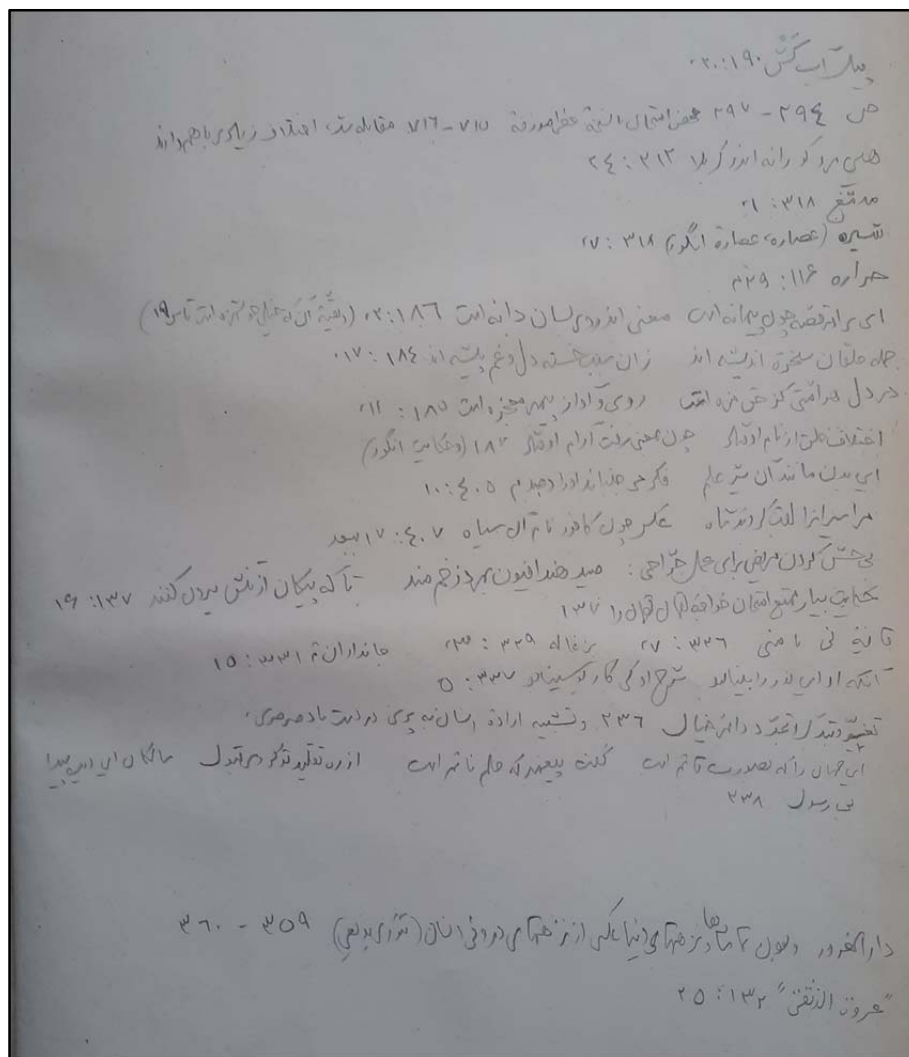 پیل آب کش ۲۰:۱۹۰
ص ۲۹۴ - ۲۹۷ ۷۱۵ - ۷۱۶ مقابله شد، اختلاف زیادی با هم دارند
هین مرو کورانه اندر کربلا ۳۱۲ : ۲۴
مدمّغ ۳۱۸ : ۱
شیره (عصاره، عصارۀ انگور) ۳۱۸ : ۷
حراره ۱۱۶ : ۲۹
ای برادر قصه چون پیمانه است معنی اندر وی بسان دانه است ۱۸۶ : ۲
جمله خلقان سخرۀ اندیشه اند زان سبب خسته دل و غم پیشه اند ۱۸۴ : ۱۷
در دل هر امّتی کز حق مزه است روی و آواز پیمبر معجزه است ۱۸۵ : ۱۱
اختلاف خلق از نام اوفتاد چون بمعنی رفت آرام اوفتاد ۱۸۷ (حکایت انگور)
این بدن مانند آن شیر علم فکر می جنباند او را دمبدم ۴۰۵ : ۱۰
مر اسیرانرا لقب کردند شاه عکس چون کافور نام آن سیاه ۴۰۷ : ۱۷ ببعد
بی حسّ کردن مریض برای عمل جرّاحی : میدهند افیون بمرد زخم مند تا که پیکان از تنش بیرون کنند ۱۳۷ : ۱۹
حکایت بسیار ممتع امتحان خواجه لقمان لقمان را ۱۳۷
قافیه نی با منی ۳۲۶ : ۷ بزغاله ۳۲۹ : ۲۳ جانداران ۳۳۱ : ۱۵
آنکه او این نور را بینا بود شرح او کی کار بوسینا بود ۳۳۷ : ۵
تغییر و تبدّل و تجدّد دائمی خیال ۲۳۶ و تشبیه ارادۀ انسان به پری در دست باد صرصری
این جهان را که بصورت قائم است گفت پیغمبر که حلم نائم است از ره تقلید تو کردی قبول سالکان این دیده پیدا
بی رسول ۲۳۸
دار الغرور و بودن تماشاها و نزهتهای دنیا عکسی از نزهتهای درونی انسان ۳۵۹ - ۳۶۰
"عروة الوثقی" ۱۳۲ : ۲۵